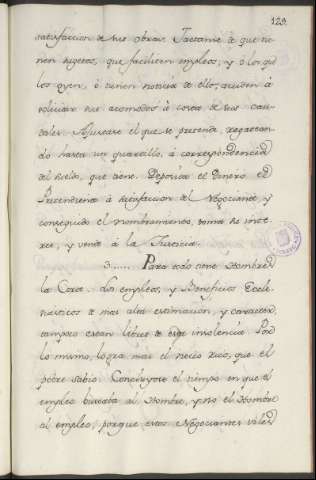 129.
satisfaccion de sus obras. Jactanse de que tie-
nen sugetos, que faciliten empleos, y ó los que
los oyen, ó tienen noticia de ello, acuden á
solicitar sus acomodos á costa de sus cau-
dales. Ajustase el que se pretende, regatean-
do hasta un quartillo, á correspondencia
del sueldo, que tiene. Deposita el Dinero el
Pretendiente á satisfaccion del Negociante, y
conseguido el nombramiento, toma su inte-
res, y vende á la Justicia.
3...... Para todo tiene Hombres
la Corte. Los empleos, y Beneficios Ecle-
siasticos de mas alta estimacion, y caracter,
tampoco estan libres de esta insolencia. Por
lo mismo, logra mas el necio rico, que el
pobre sabio. Concluyose el tiempo en que el
empleo buscaba al Hombre, y no el Hombre
al empleo; porque estos Negociantes viles